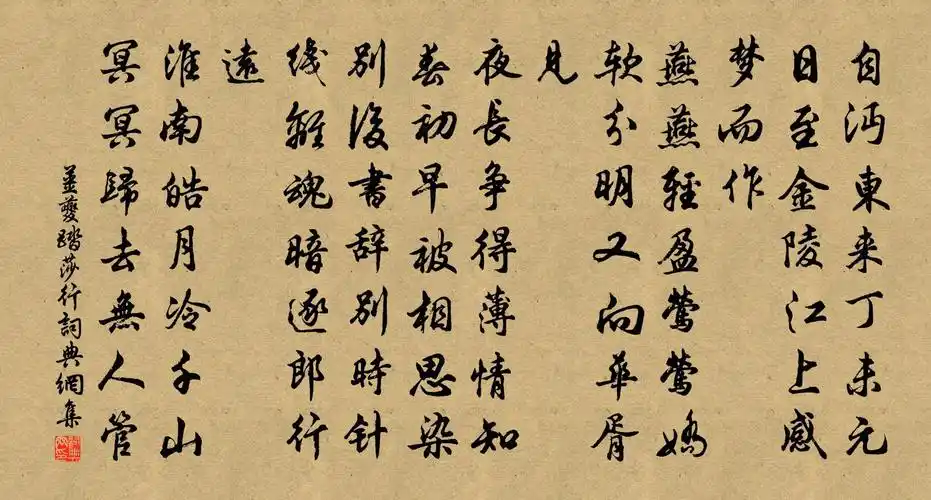 自沔東来丁未元
日至金陵江上感
梦而作
燕燕輕盈鶯鶯嬌
软分明又向華胥
见
夜長争得薄情知
春初早被相思染
别後書辞别時针
线離魂暗逐郎行
遠
淮南皓月冷千山
冥冥歸去無人管
姜夔踏莎行詞典網集